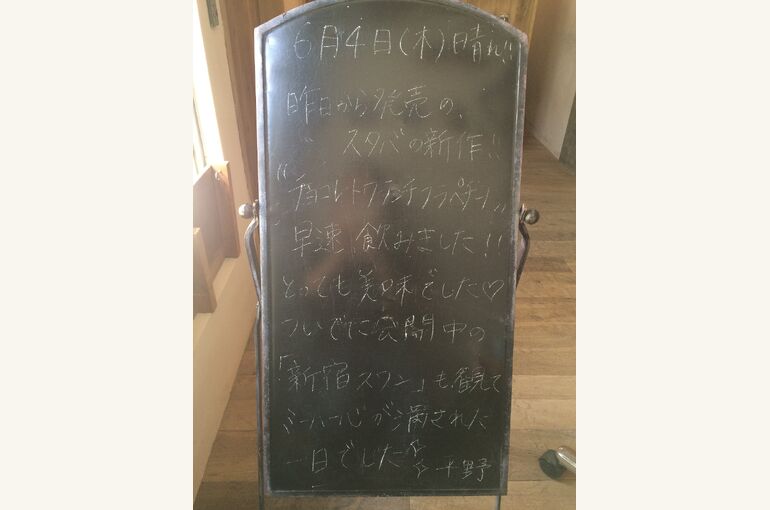 6月4日(木)晴れ!!
昨日から発売の、
スタバの新作!!
"チョコレートクランチフラペチーノ"
早速、飲みました!!
とっても美味でした♡
ついでに公開中の
「新宿スワン」も観て
ミーハー心が満された
一日でした☆☆平野